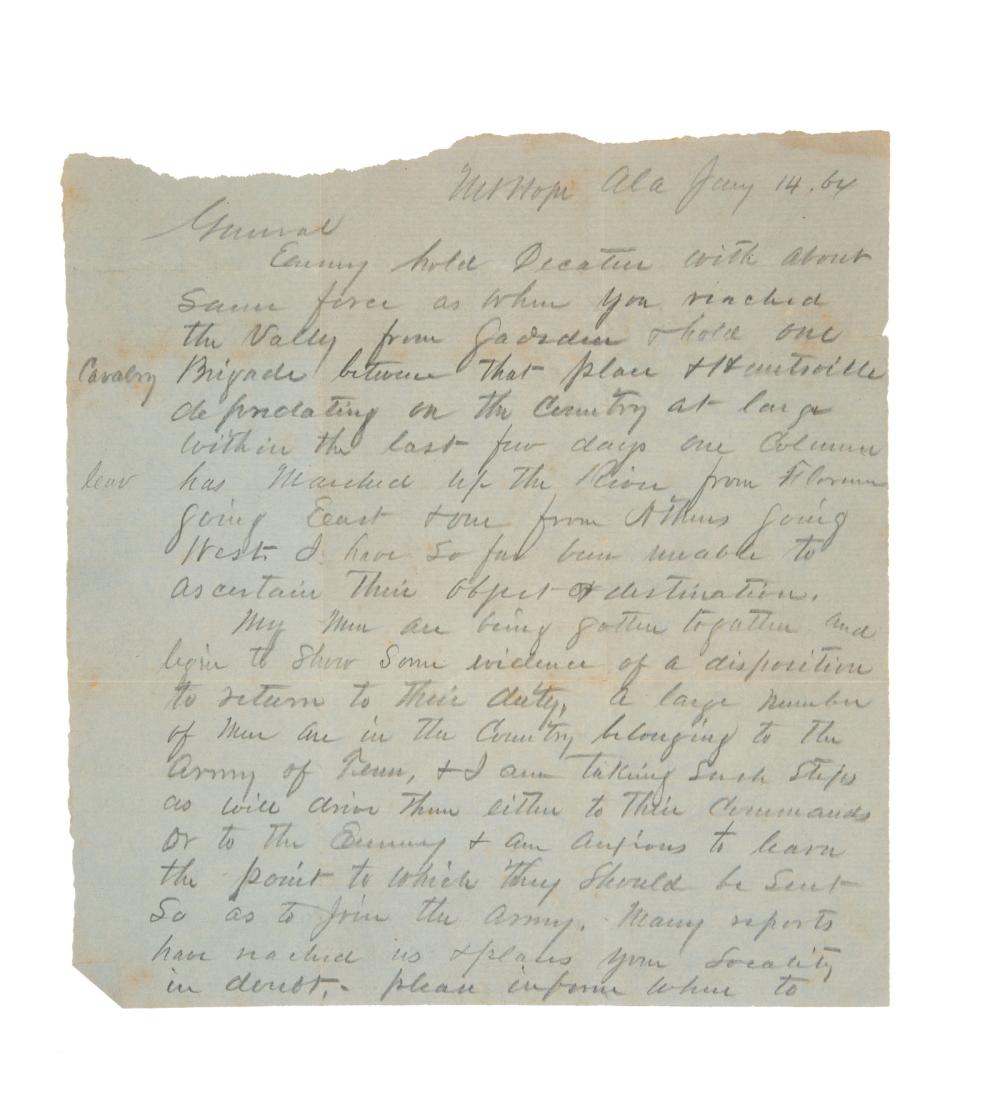 Mt Hope Ala Jany 14. 64
General
Enemy hold Decatur with about
same force as when you reached
the Valley from Gadsden & hold one
Cavalry Brigade between that place & Huntsville
depredating on the Country at large
within the last few days one Column
has Marched up the River from Florence
going East & one from Athens going
West. I have so far been unable to
ascertain their object & destination.
My Men are being gotten together and
begin to show some evidence of a disposition
to return to their duty, a large number
of Men are in the Country belonging to the
Army of Tenn, & I am taking such steps
as will drive them either to their Commands
or to the Enemy & am anxious to learn
the point to which they should be sent
so as to join the Army. Many reports
have reached us & places your Locality
in doubt,- please inform where to